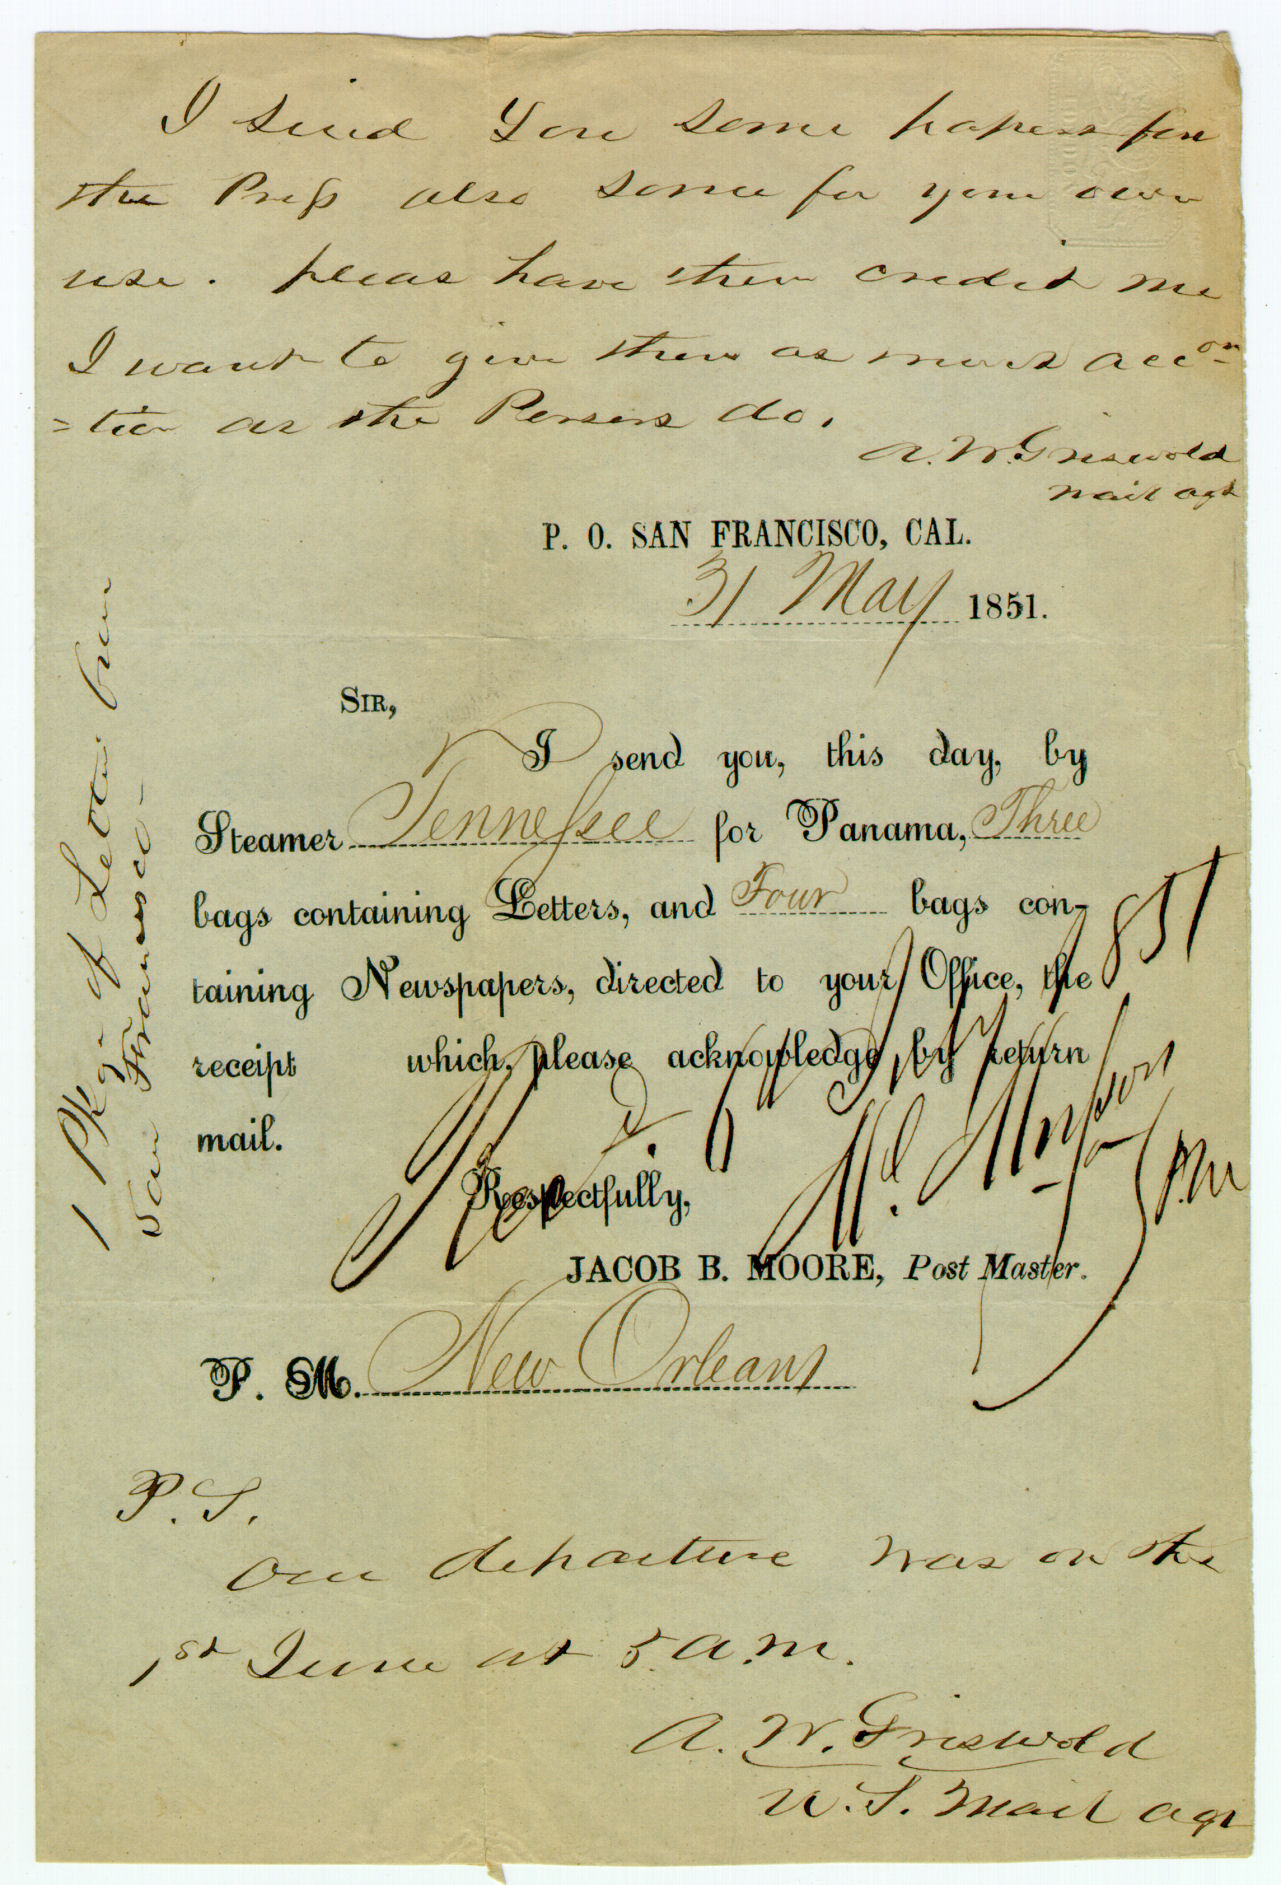 I send You some papers for
the Press also some for your own
use. pleas have them credit me
I want to give them as much acc on
= tion as the Pursers do.
A. W. Griswold
Mail agt
P. O. SAN FRANCISCO, CAL.
31 May 1851.
SIR,
I send you, this day, by
Steamer Tennessee for Panama, Three
bags containing Letters, and Four bags con-
taining Newspapers, directed to your Office, the
receipt which, please acknowledge by return
mail.
Respectfully,
JACOB B. MOORE, Post Master.
P. M. New Orleans
1 Pkg- of Letters from
San Francisco-
Rec'd. July 1851
P.M
P.S.
Our departure was on the
1st June at 5 a.m.
A. W. Griswold
U.S. Mail agt